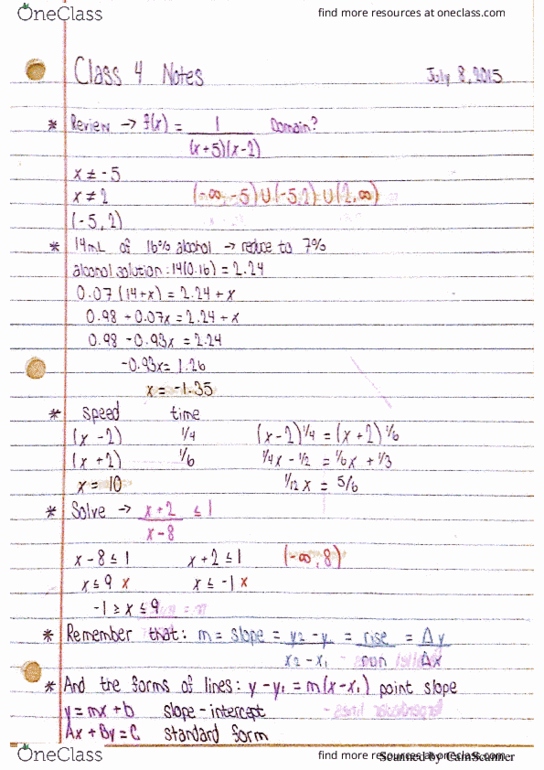 OneClass
find more resources at oneclass.com
Class 4 Notes July 8, 2015
* Review → f(x) = 1 / (x+5)(x-2) Domain?
x ≠ -5
x ≠ 2 (-∞, -5) U (-5, 2) U (2, ∞)
(-5, 2)
* 14mL of 16% alcohol → reduce to 7%
alcohol solution: 14(0.16) = 2.24
0.07(14+x) = 2.24 + x
0.98 + 0.07x = 2.24 + x
0.98 - 0.93x = 2.24
-0.93x = 1.26
x = -1.35
* speed time
(x - 2) 1/4 (x-2)1/4 = (x+2)1/6
(x + 2) 1/6 1/4x - 1/2 = 1/6x + 1/3
x = 10 1/12 x = 5/6
* Solve → x+2 / x-8 ≤ 1
x - 8 ≤ 1 x + 2 ≤ 1 (-∞, 8)
x ≤ 9 x x ≤ -1 x
-1 ≥ x ≤ 9
* Remember that: m = slope = y2 - y1 / x2 - x1 = rise / run = Δy / Δx
* And the forms of lines: y - y1 = m(x - x1) point slope
y = mx + b slope-intercept
Ax + By = C standard form
OneClass
find more resources at oneclass.com
Scanned by CamScanner